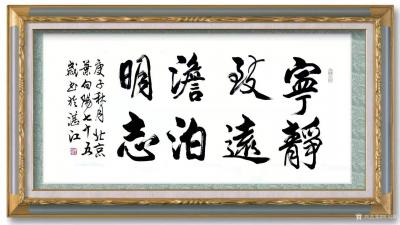 寧靜
致遠
澹泊
明志
庚子秋月北京
葉向陽七十五
歲书於湛江